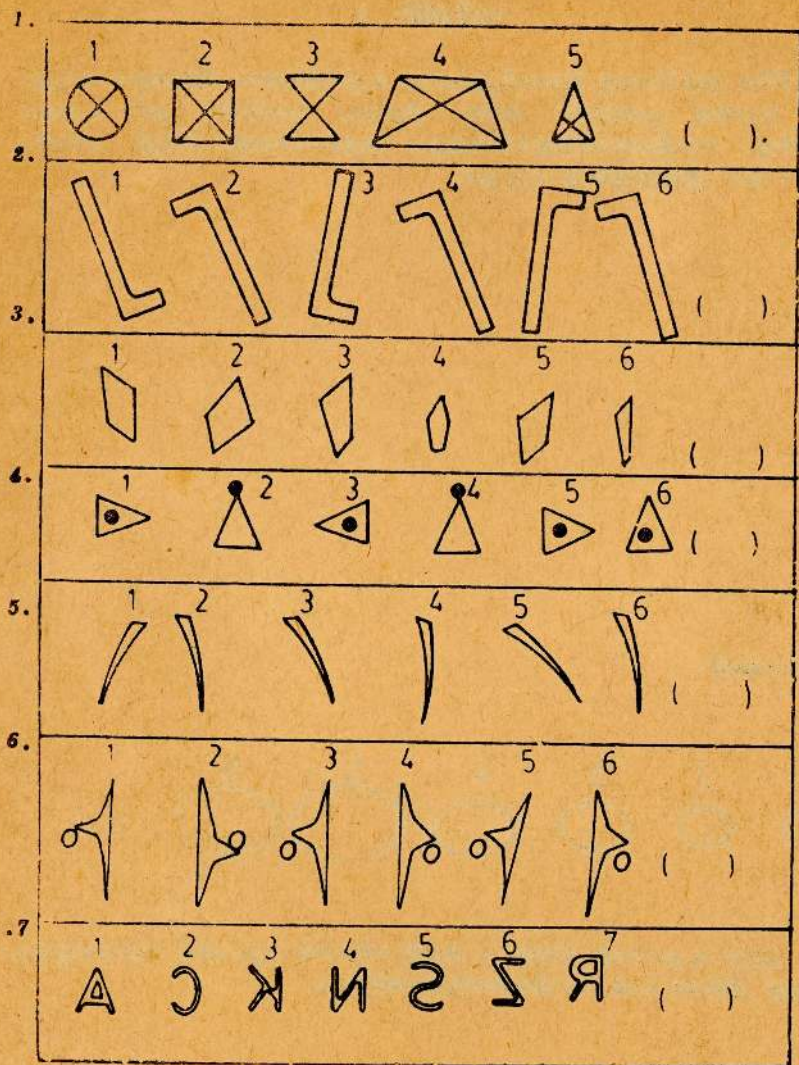 1.
1 2 3 4 5
( ).
2.
1 2 3 4 5 6
( )
3.
1 2 3 4 5 6
( )
4.
1 2 3 4 5 6
( )
5.
1 2 3 4 5 6
( )
6.
1 2 3 4 5 6
( )
.7
1 2 3 4 5 6 7
A C K N S Z R ( )